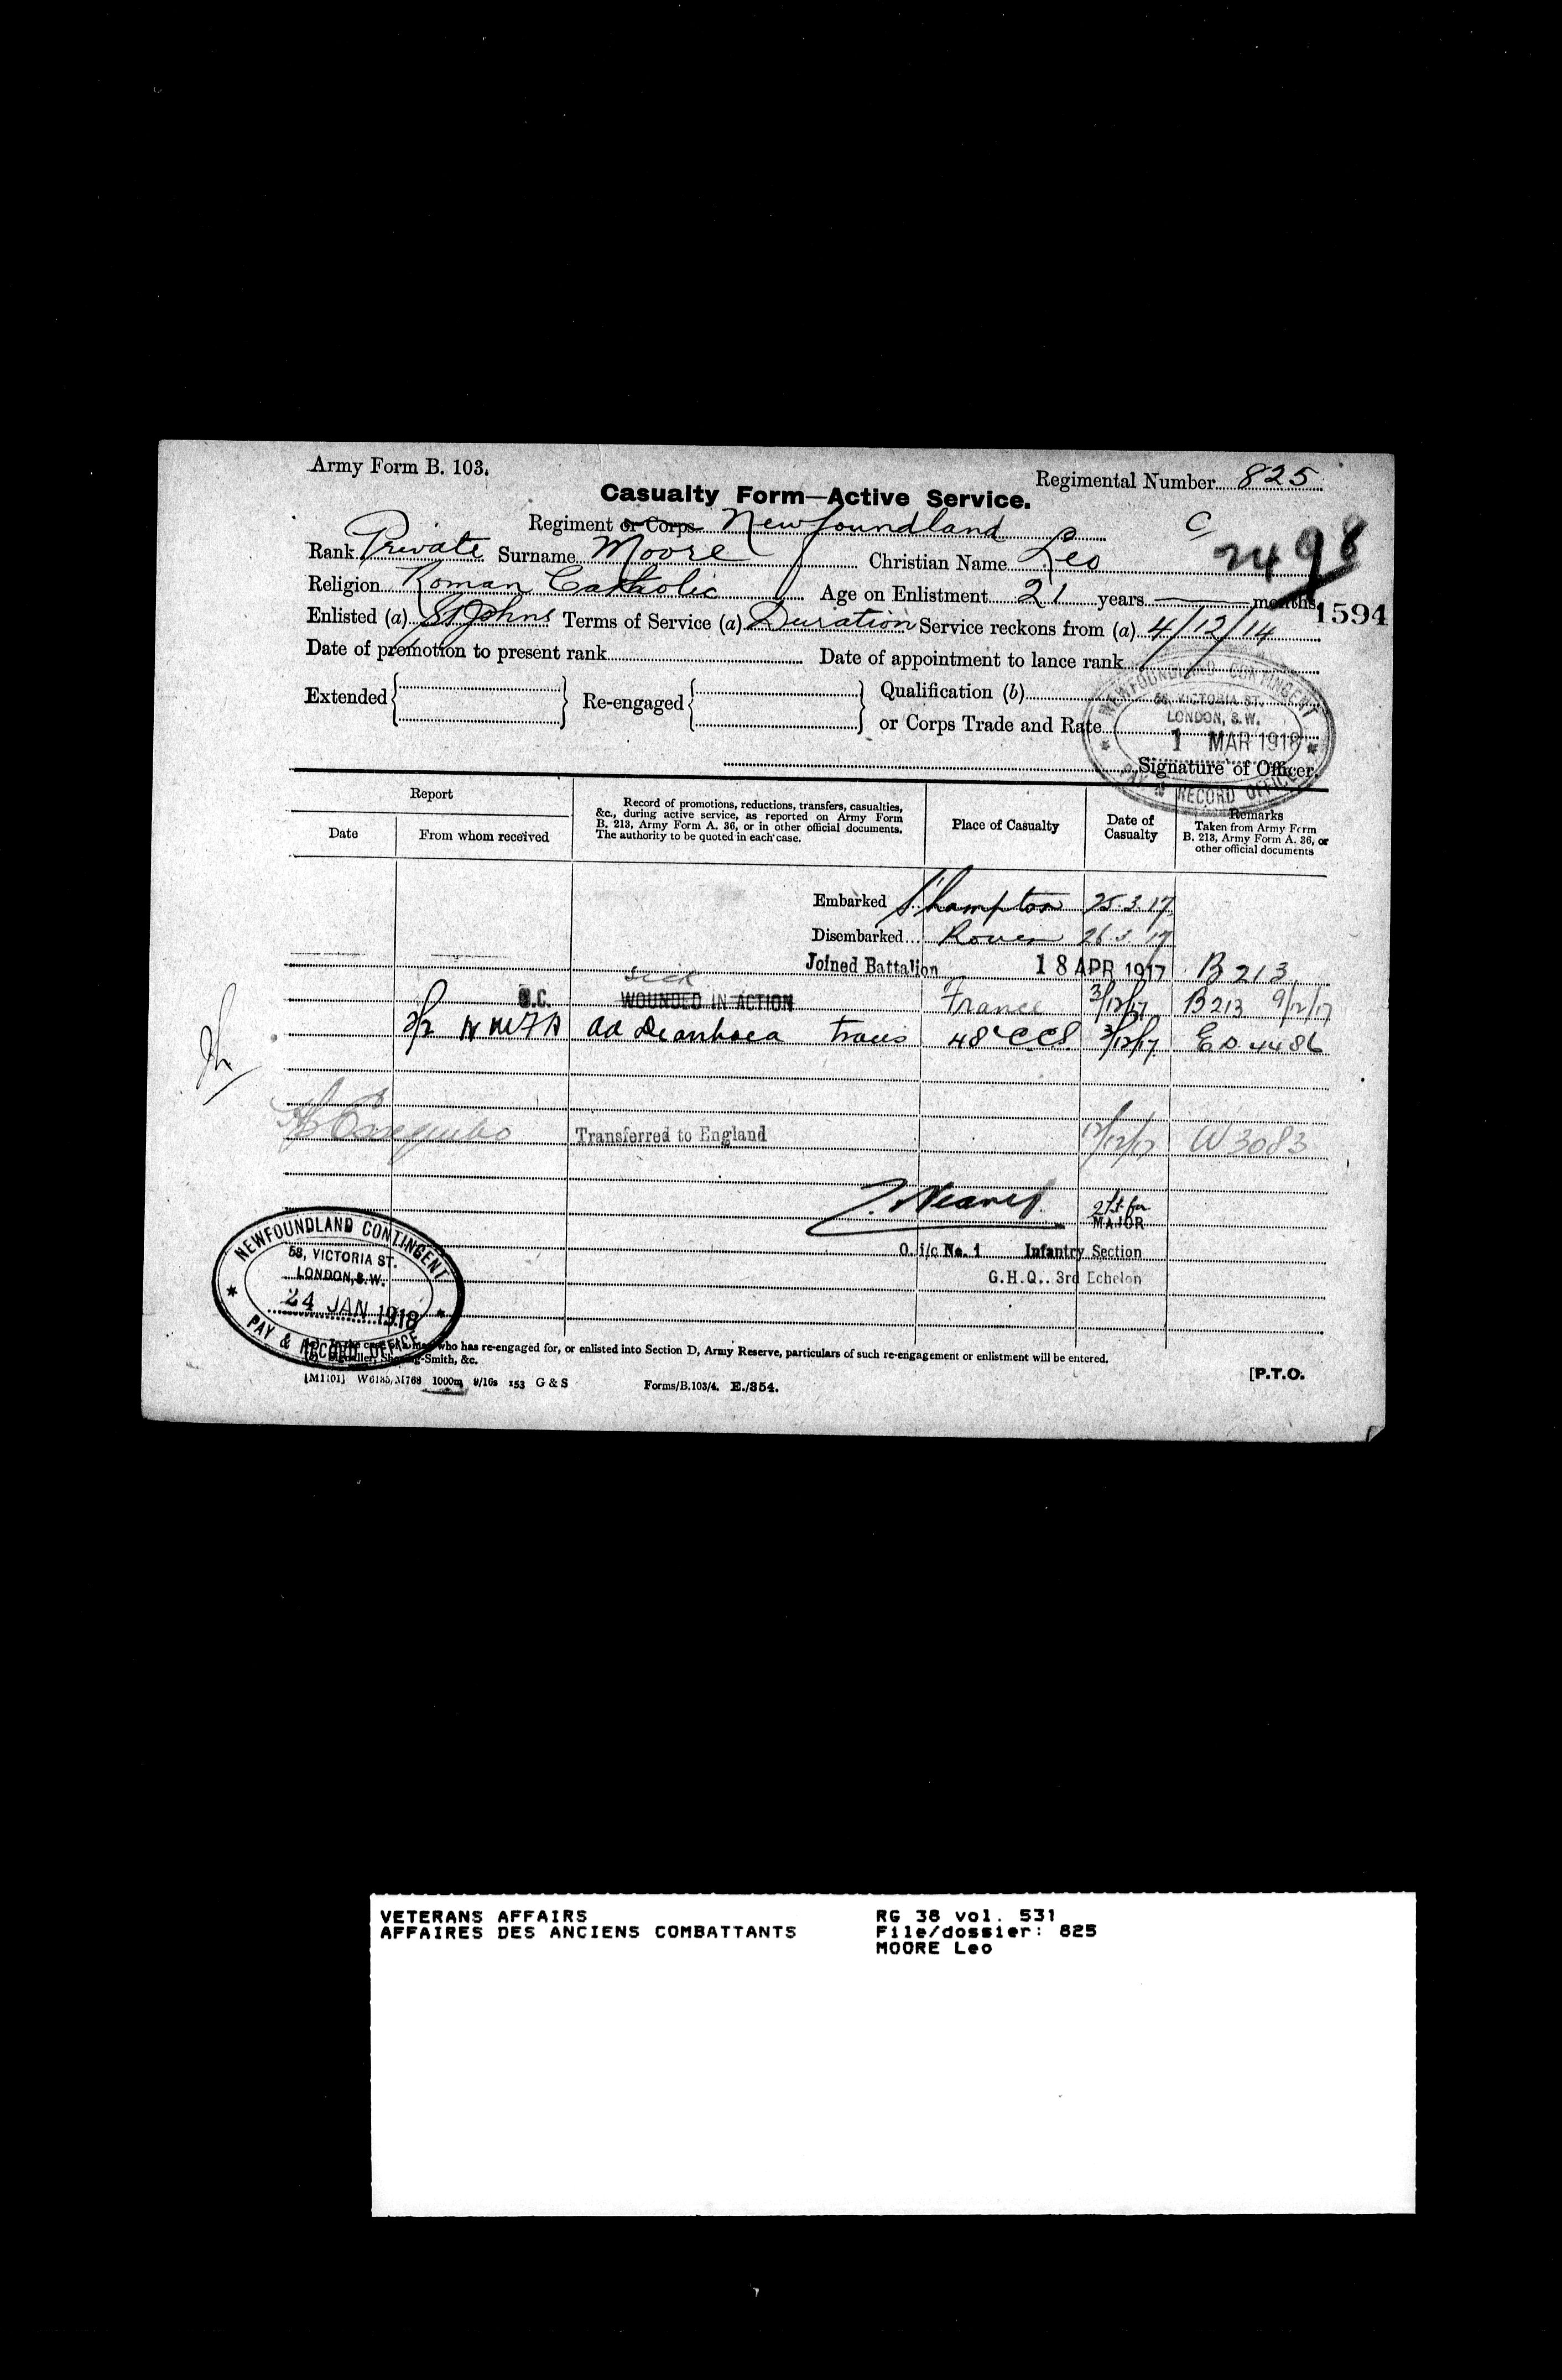 Army Form B. 103.
Regimental Number 825
Casualty Form—Active Service.
Regiment or Corps Newfoundland
C
2498
Rank Private Surname Moore Christian Name Leo
Religion Roman Catholic Age on Enlistment 21 years — months
1594
Enlisted (a) St Johns Terms of Service (a) Duration Service reckons from (a) 4/12/14
Date of promotion to present rank Date of appointment to lance rank
Extended Re-engaged Qualification (b)
or Corps Trade and Rate
NEWFOUNDLAND CONTINGENT
58, VICTORIA ST.
LONDON, S.W.
1 MAR 1918
PAY & RECORD OFFICE
Signature of Officer.
Report
Date From whom received
Record of promotions, reductions, transfers, casualties,
&c., during active service, as reported on Army Form
B. 213, Army Form A. 36, or in other official documents.
The authority to be quoted in each case.
Place of Casualty
Date of
Casualty
Remarks
Taken from Army Form
B. 213, Army Form A. 36, or
other official documents
Embarked S'hampton 25.3.17
Disembarked Rouen 26.3.17
Joined Battalion 18 APR 1917 B 213
sick
O.C. WOUNDED IN ACTION France 3/12/17 B213 9/12/17
Diarrhoea trans 48 CCS 3/12/17 E.D. 4486
Essequibo Transferred to England 12/12/17 W 3083
2/Lt for
MAJOR
O. i/c No. 1 Infantry Section
G.H.Q.. 3rd Echelon
NEWFOUNDLAND CONTINGENT
58, VICTORIA ST.
LONDON, S.W.
24 JAN 1918
PAY & RECORD OFFICE
who has re-engaged for, or enlisted into Section D, Army Reserve, particulars of such re-engagement or enlistment will be entered.
-Smith, &c.
[M1101] W6185/M768 1000m 9/16s 153 G & S Forms/B.103/4. E./354.
[P.T.O.
VETERANS AFFAIRS
AFFAIRES DES ANCIENS COMBATTANTS
RG 38 vol. 531
File/dossier: 825
MOORE Leo